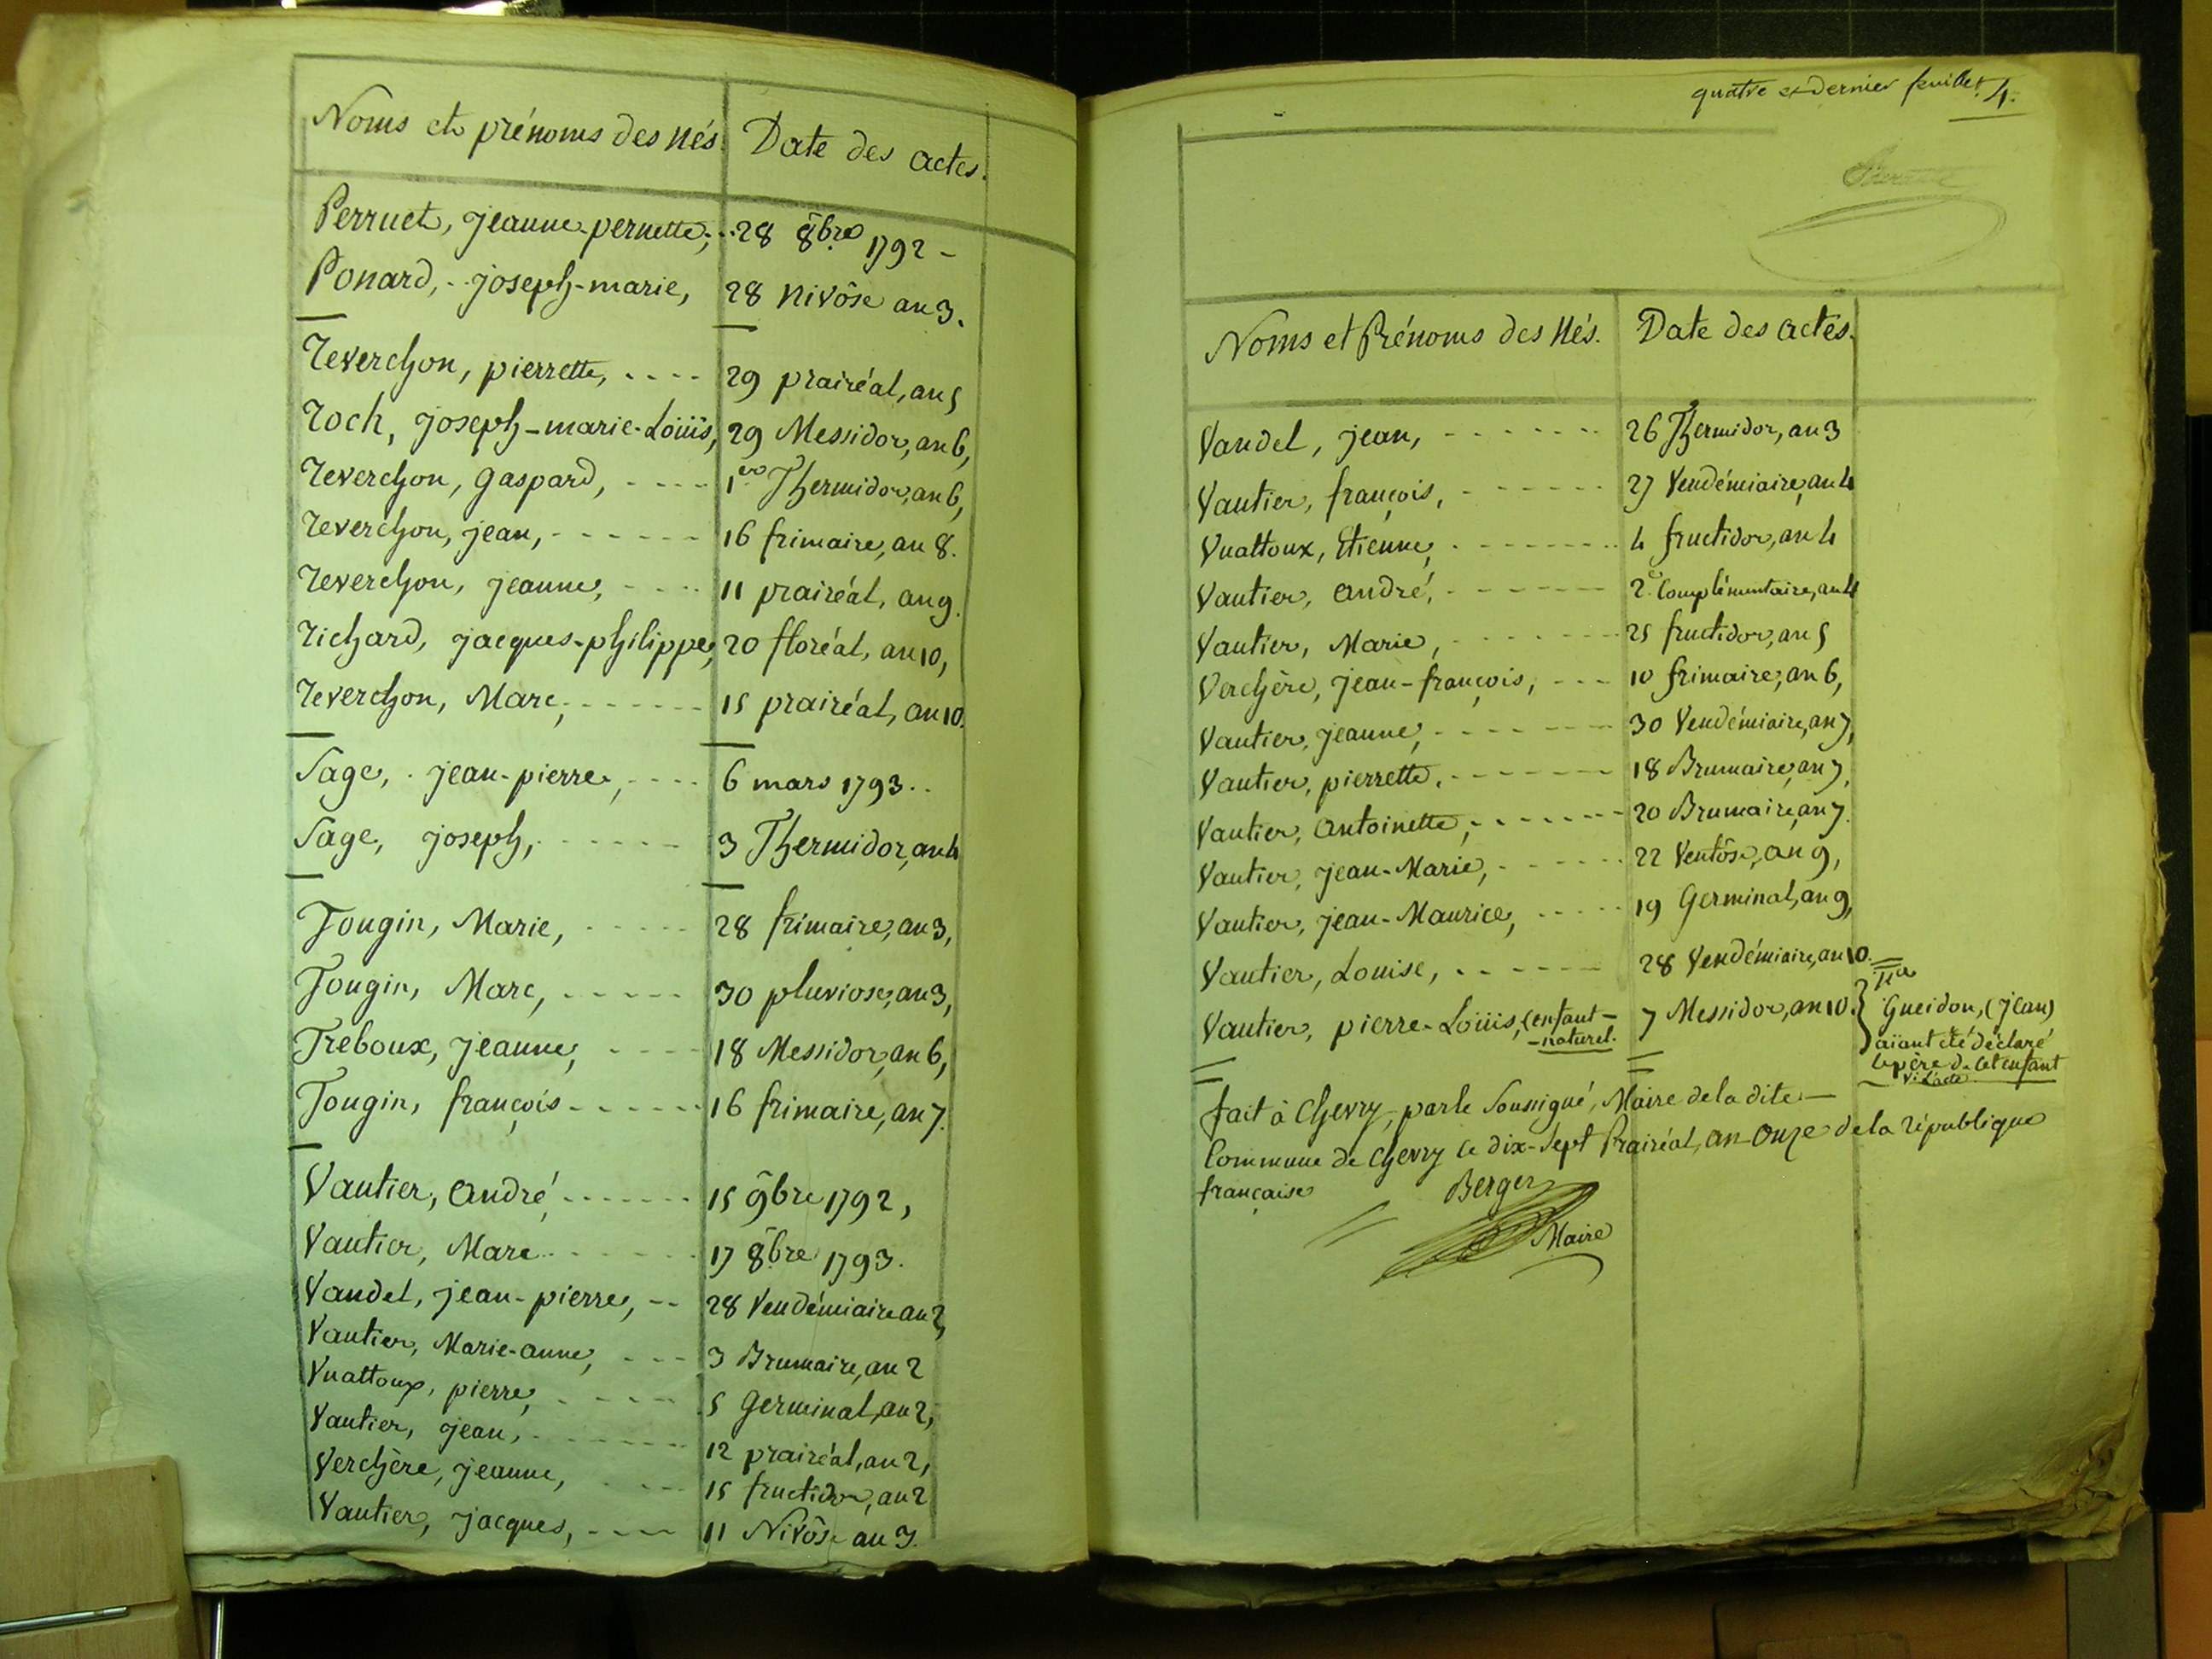 Noms et prénoms des Nés. Date des actes.
Perruet, jeanne-pernette, 28 8bre 1792 -
Ponard, joseph-marie, 28 Nivôse an 3.
Reverchon, pierrette, 29 prairéal, an 5
Roch, joseph-marie-Loüis, 29 Messidor, an 6,
Reverchon, Gaspard, 1er Thermidor, an 6,
Reverchon, jean, 16 frimaire, an 8.
Reverchon, jeanne, 11 prairéal, an 9.
Richard, jacques-philippe, 20 floréal, an 10,
Reverchon, Marc, 15 prairéal, an 10.
Sage, jean-pierre, 6 mars 1793.
Sage, joseph, 3 Thermidor, an 4
Tougin, Marie, 28 frimaire, an 3,
Tougin, Marc, 30 pluviose, an 3,
Treboux, jeanne, 18 Messidor, an 6,
Tougin, françois 16 frimaire, an 7.
Vautier, andré, 15 9bre 1792,
Vautier, Marc 17 8bre 1793.
Vandel, jean-pierre, 28 Vendémiaire an 2,
Vautier, Marie-anne, 3 Brumaire, an 2
Vuattoux, pierre, 5 Germinal, an 2,
Vautier, jean, 12 prairéal, an 2,
Verchère, jeanne, 15 fructidor, an 2
Vautier, jacques, 11 Nivôse an 3.
quatre et dernier feuillet. 4.
Noms et Prénoms des Nés. Date des actes.
Vandel, jean, 26 Thermidor, an 3
Vautier, françois, 27 Vendémiaire, an 4
Vuattoux, Etienne, 4 fructidor, an 4
Vautier, andré, 2e Complémentaire, an 4
Vautier, Marie, 25 fructidor, an 5
Verchère, jean-françois, 10 frimaire, an 6,
Vautier, jeanne, 30 Vendémiaire, an 7,
Vautier, pierrette, 18 Brumaire, an 7,
Vautier, Antoinette, 20 Brumaire, an 7.
Vautier, jean-Marie, 22 Ventôse, an 9,
Vautier, jean-Maurice, 19 Germinal, an 9,
Vautier, Louise, 28 Vendémiaire, an 10.
Vautier, pierre-Loüis, (enfant-
-naturel. 7 Messidor, an 10.
Gueidon, (jean)
aïant été déclaré
le père de cet enfant
V. l'acte
fait à Chevry, par le Soussigné, Maire de la dite
Commune de Chevry le dix-Sept Prairéal, an Onze de la république
française
Berger
Maire